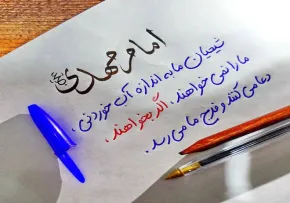 امام مهدی (عج)
شیعیان ما به اندازه آب خوردنی،
ما را نمی خواهند، اگر بخواهند،
دعا می کنند و فرج ما می رسد.